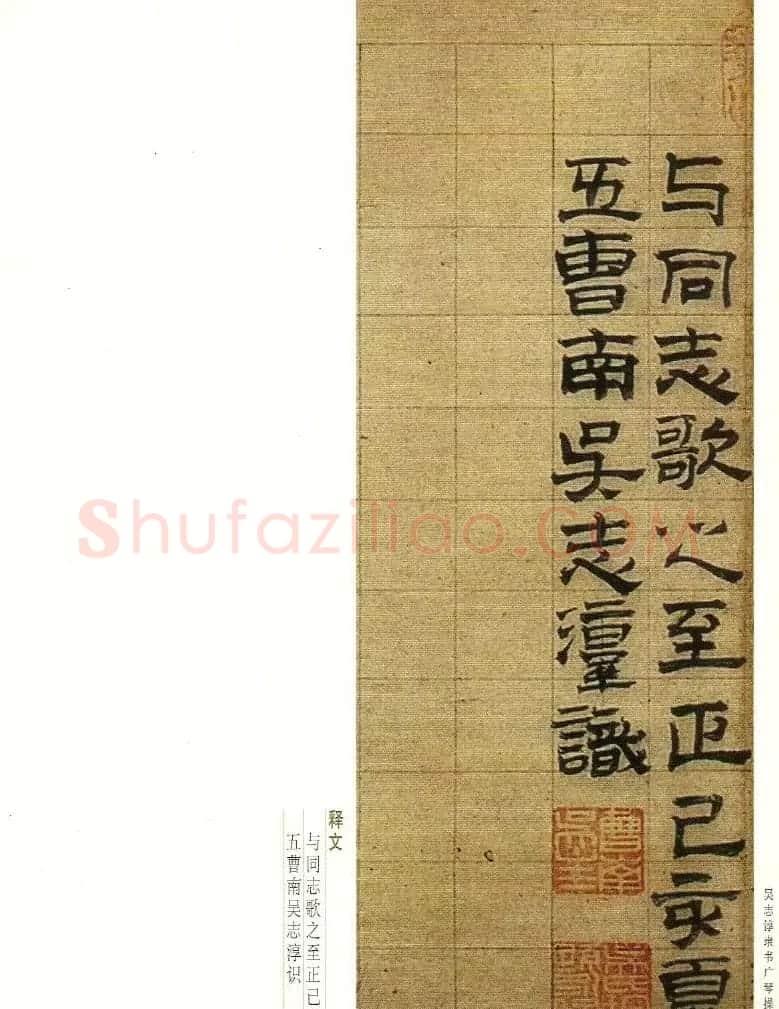 与同志歌之至正己亥夏
五曹南吳志淳識
释文
与同志歌之至正己
五曹南吴志淳识
吴志淳隶书广琴操
Shufaziliao.COM